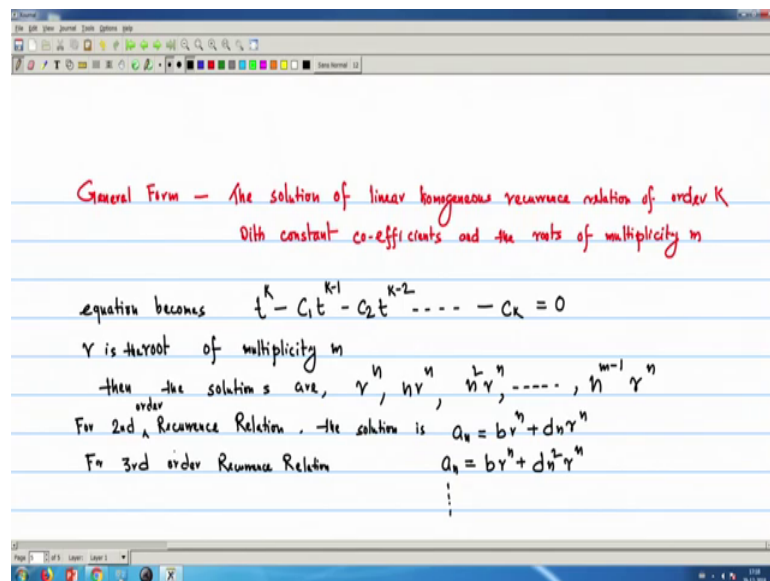 Journal
File Edit View Journal Tools Options Help
Sans Normal 12
General Form — The solution of linear homogeneous recurrence relation of order K
Dith constant co-efficients and the roots of multiplicity m
equation becomes t^K - C₁t^{K-1} - C₂t^{K-2} ---- - C_K = 0
r is the root of multiplicity m
then the solution s are, r^n, nr^n, n²r^n, -----, n^{m-1} r^n
For 2nd order Recurrence Relation, the solution is a_n = br^n + dnr^n
For 3rd order Recurrence Relation a_n = br^n + dn²r^n
Page 5 of 5 Layer: Layer 1
17:08